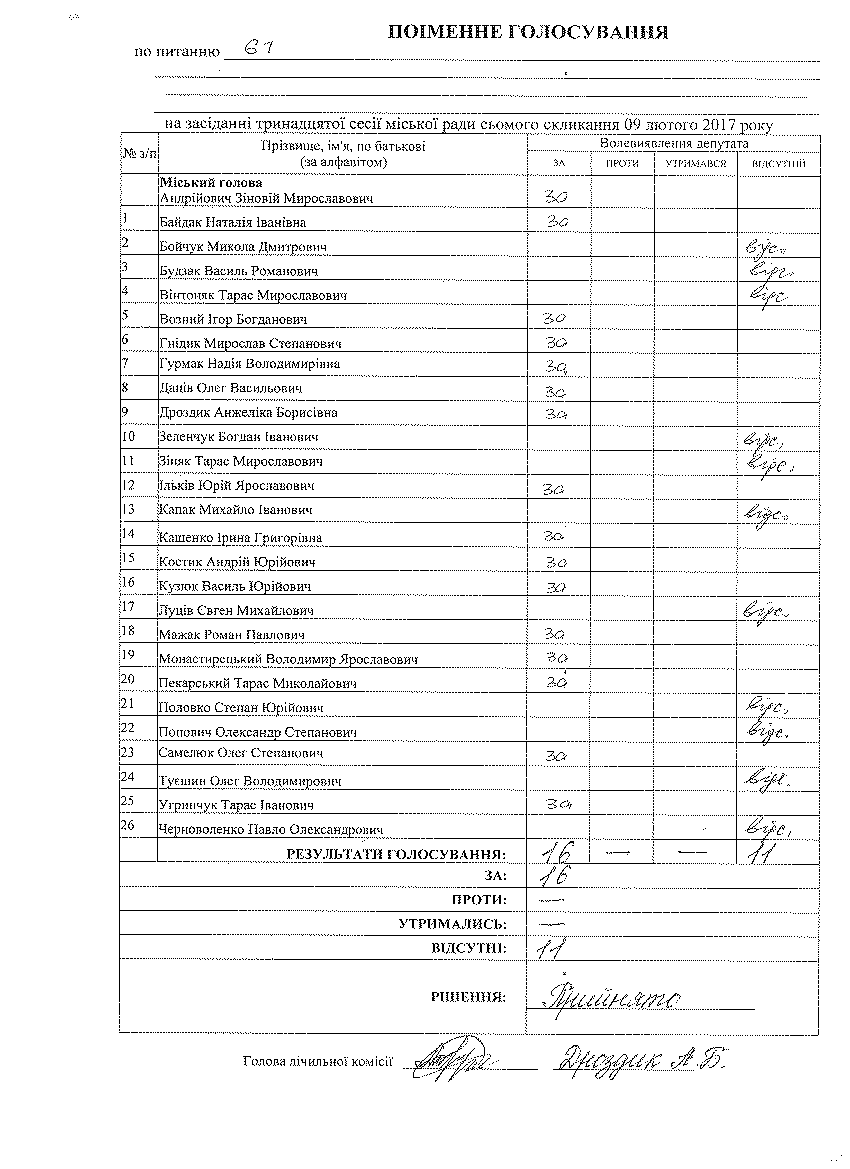 ПОІМЕННЕ ГОЛОСУВАННЯ
по питанню 61
на засіданні тринадцятої сесії міської ради сьомого скликання 09 лютого 2017 року
№ з/п Прізвище, ім'я, по батькові (за алфавітом) Волевиявлення депутата
ЗА ПРОТИ УТРИМАВСЯ ВІДСУТНІЙ
Міський голова
Андрійович Зіновій Мирославович за
1 Байдак Наталія Іванівна за
2 Бойчук Микола Дмитрович відс.
3 Будзак Василь Романович відс.
4 Вінтоняк Тарас Мирославович відс
5 Возний Ігор Богданович за
6 Гнідик Мирослав Степанович за
7 Гурмак Надія Володимирівна за
8 Даців Олег Васильович за
9 Дроздик Анжеліка Борисівна за
10 Зеленчук Богдан Іванович відс.
11 Зіняк Тарас Мирославович відс.
12 Ільків Юрій Ярославович за
13 Капак Михайло Іванович відс.
14 Кашенко Ірина Григорівна за
15 Костик Андрій Юрійович за
16 Кузюк Василь Юрійович за
17 Луців Євген Михайлович відс.
18 Мажак Роман Павлович за
19 Монастирецький Володимир Ярославович за
20 Пекарський Тарас Миколайович за
21 Половко Степан Юрійович відс.
22 Попович Олександр Степанович відс.
23 Самелюк Олег Степанович за
24 Туєшин Олег Володимирович відс.
25 Угринчук Тарас Іванович за
26 Черноволенко Павло Олександрович відс.
РЕЗУЛЬТАТИ ГОЛОСУВАННЯ: 16 — — 11
ЗА: 16
ПРОТИ: —
УТРИМАЛИСЬ: —
ВІДСУТНІ: 11
РІШЕННЯ: Прийнято
Голова лічильної комісії Дроздик А.Б.